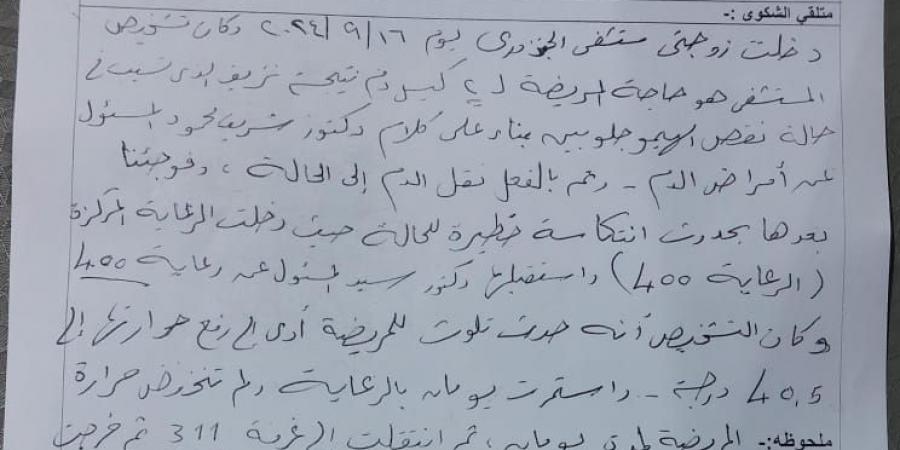 متلقي الشكوى :-
دخلت زوجتى مستشفى الجنزورى يوم ١٦/٩/٢٠٢٤ وكان تشخيص
المستشفى هو حاجة المريضة لـ ٢ كيس دم نتيجة نزيف الذى تسبب فى
حالة نقص الهيموجلوبين بناء على كلام دكتور شريف محمود المسئول
عن أمراض الدم - وتم بالفعل نقل الدم إلى الحالة ، وفوجئنا
بعدها بحدوث انتكاسة خطيرة للحالة حيث دخلت الرعاية المركزة
(الرعاية 400) واستقبلها دكتور سيد المسئول عن رعاية 400
وكان التشخيص أنه حدث تلوث للمريضة أدى إلى رفع حرارتها إلى
40,5 درجة - واستمرت يومان بالرعاية ولم تنخفض حرارة
ملحوظة:- المريضة لمدى يومان ، ثم انتقلت إلى غرفة 311 ثم خرجت